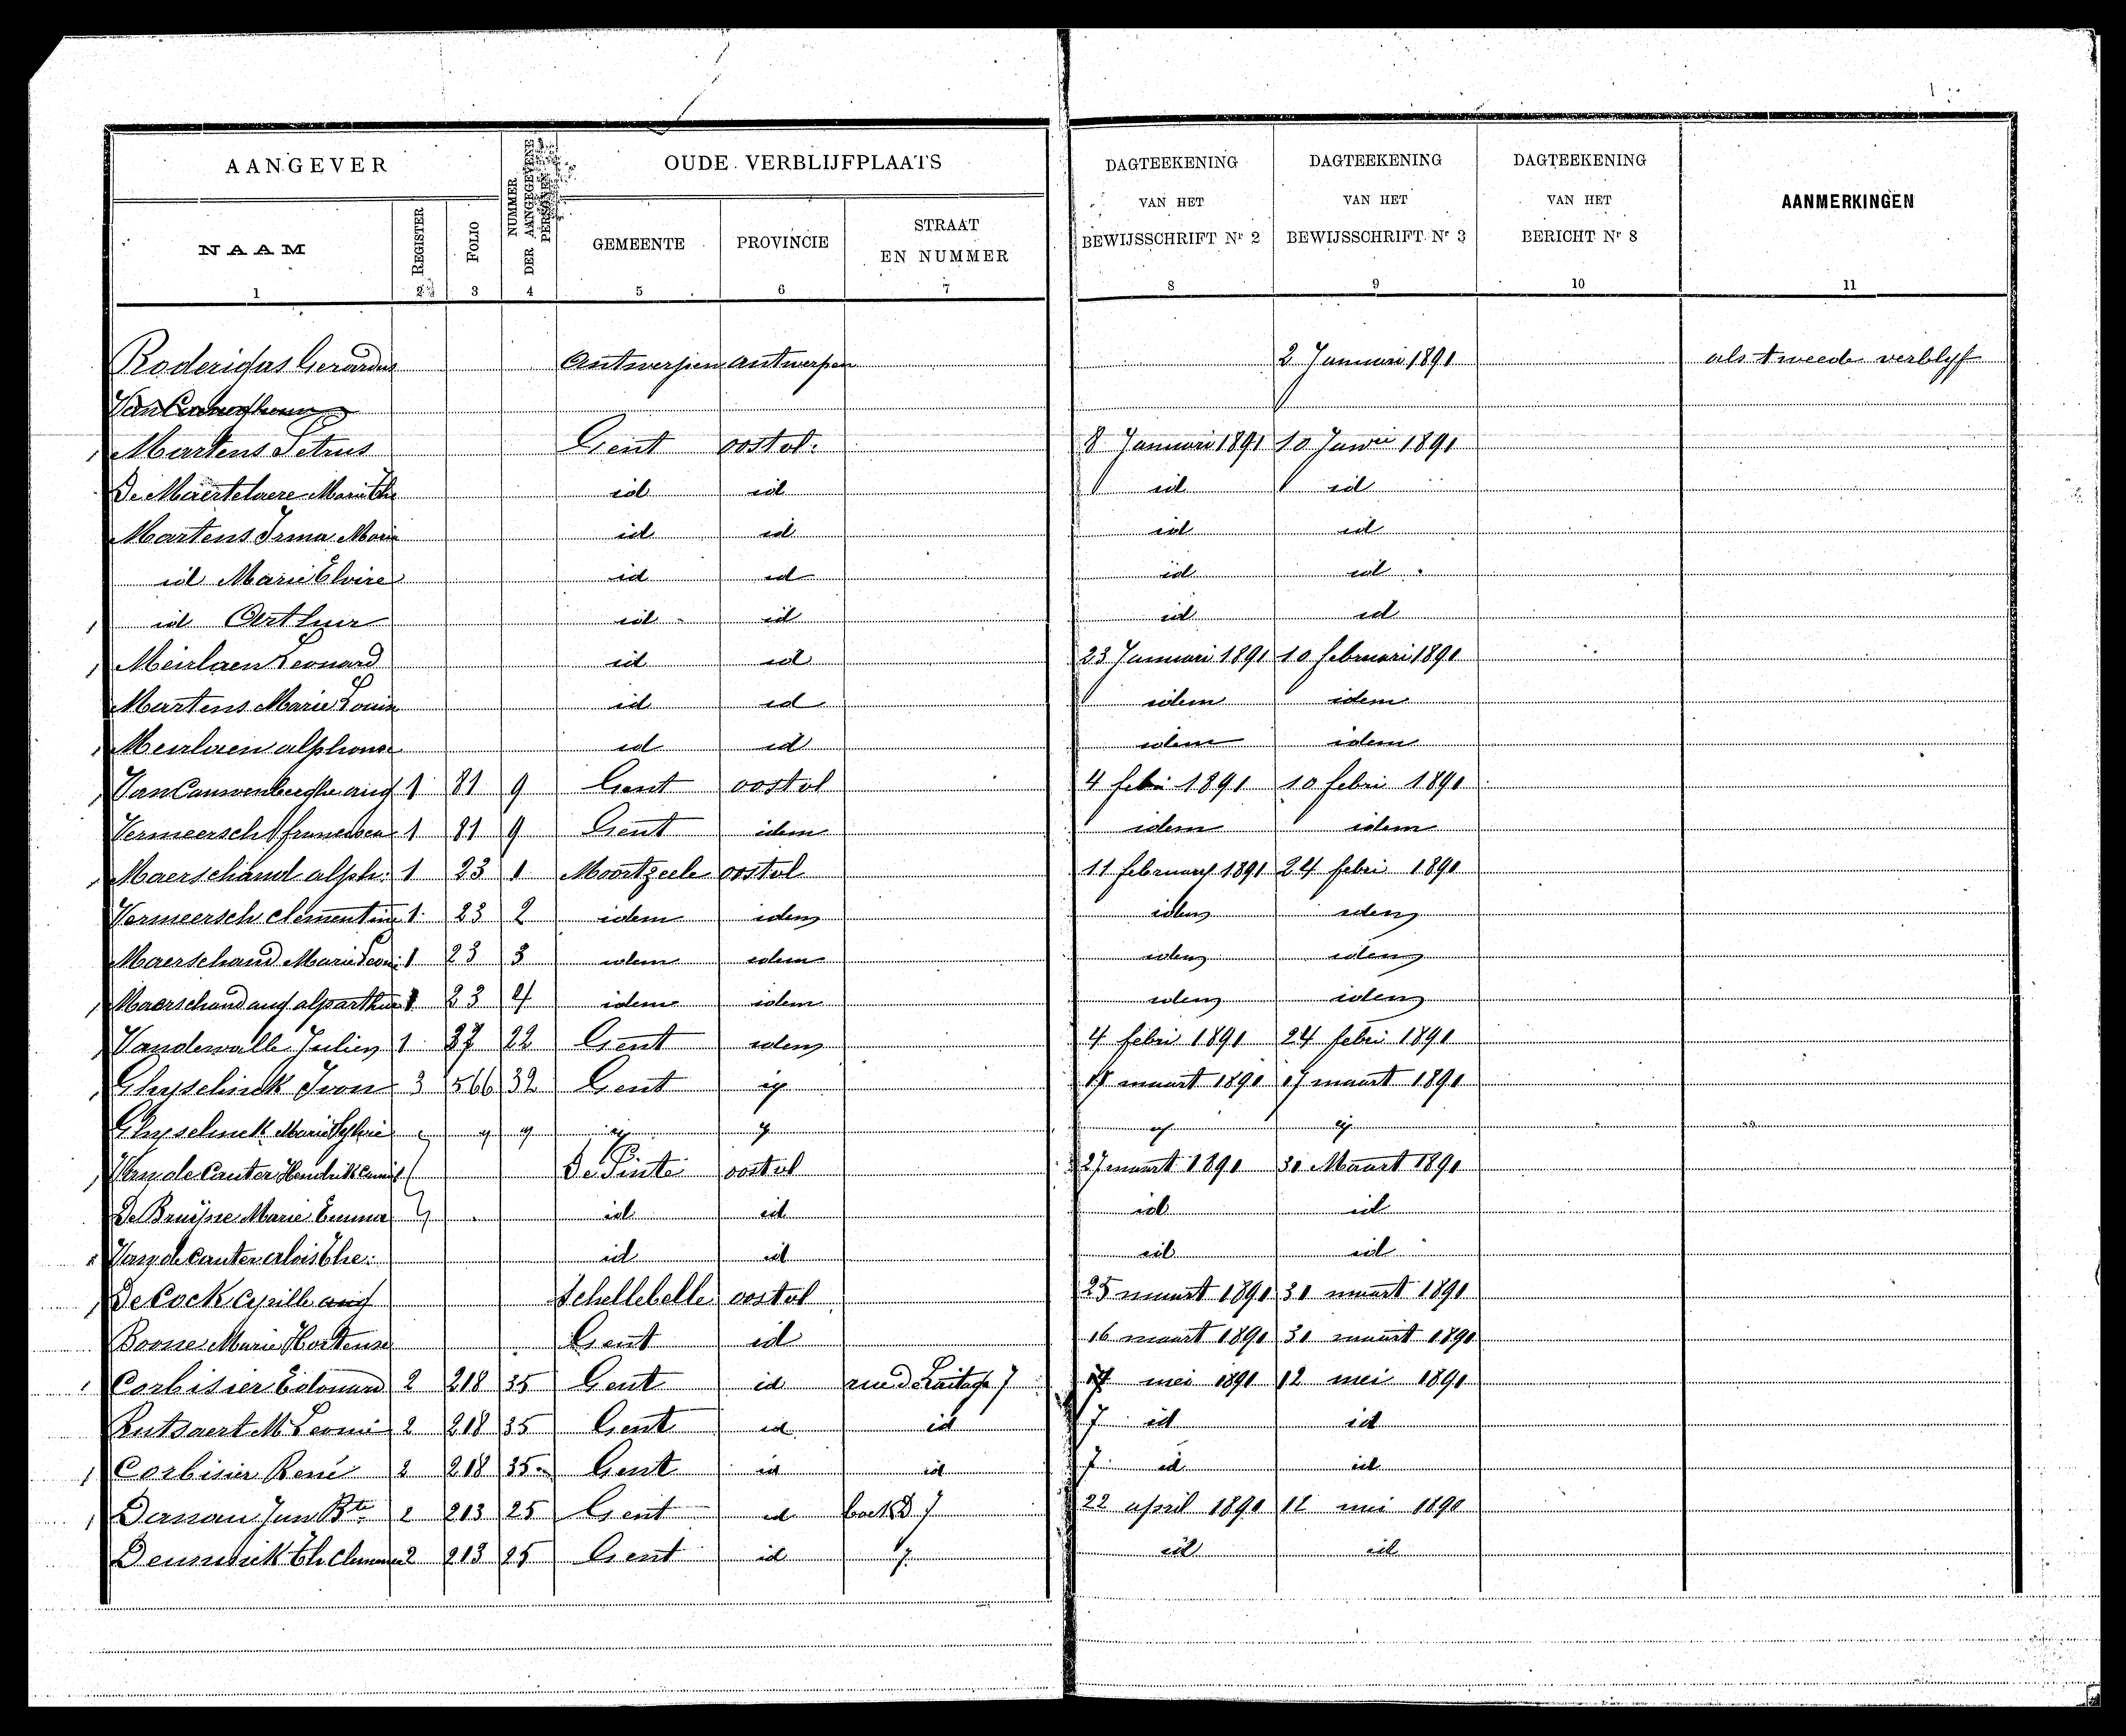 AANGEVER
NUMMER DER AANGEGEVENE PERSONEN
OUDE VERBLIJFPLAATS
DAGTEEKENING VAN HET BEWIJSSCHRIFT Nr 2
DAGTEEKENING VAN HET BEWIJSSCHRIFT Nr 3
DAGTEEKENING VAN HET BERICHT Nr 8
AANMERKINGEN
NAAM REGISTER FOLIO GEMEENTE PROVINCIE STRAAT EN NUMMER
1 2 3 4 5 6 7 8 9 10 11
Roderigas Gerardus Antwerpen antwerpen 2 Januari 1891 als tweede verblyf
Martens Petrus Gent oostvl. 8 Januari 1891 10 Janri 1891
De Maertelaere Marie Th id id id id
Martens Irma Marie id id id id
id Marie Elvire id id id id
id Arthur id id id id
Meirlaen Leonard id id 23 Januari 1891 10 februari 1891
Martens Marie Louis id id idem idem
Meirlaen alphonse id id idem idem
Van Cauwenberghe aug 1 81 9 Gent oostvl 4 febri 1891 10 febri 1891
Vermeersch francisca 1 81 9 Gent idem idem idem
Maerschand alph. 1 23 1 Moortzeele oostvl 11 february 1891 24 febri 1891
Vermeersch clementine 1 23 2 idem idem idem idem
Maerschand Marie Leoni 1 23 3 idem idem idem idem
Maerschand aug alp arthur 1 23 4 idem idem idem idem
Vandewalle Julien 1 37 22 Gent idem 4 febri 1891 24 febri 1891
Ghyselinck Ivon 3 566 32 Gent id 17 maart 1891 17 maart 1891
Ghyselinck Marie Sylvie " " " id " id id
Van de Cauter Hendrik Camil De Pinte oostvl 27 maart 1891 30 Maart 1891
De Bruijne Marie Emma id id id id
Van de cauter alois The. id id id id
De Cock Cyrille aug Schellebelle oostvl 25 maart 1891 30 maart 1891
Boone Marie Hortense Gent id 16 maart 1891 30 maart 1891
Corbisier Edouard 2 218 35 Gent id rue de 7 mei 1891 12 mei 1891
Rutsaert M Leonie 2 218 35 Gent id id 7 id id
Corbisier René 2 218 35 Gent id id 7 id id
Danau Jan Bte 2 213 25 Gent id 7 22 april 1891 12 mei 1891
Th 2 213 25 Gent id 7 id id